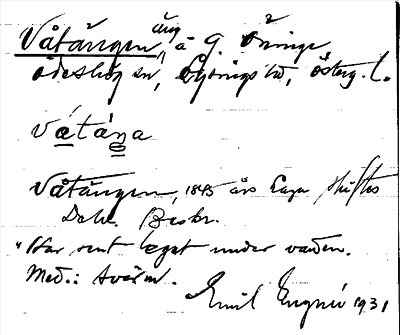 Våtängen, äng å G. Öninge,
Ödeshög sn, Lysings hd, Österg. l.
vátáŋa
Våtängen, 1845 års Laga Skiftes
Dehl. Beskr.
"Har sent legat under vatten.
Med.: Avärn.
Emil 1931